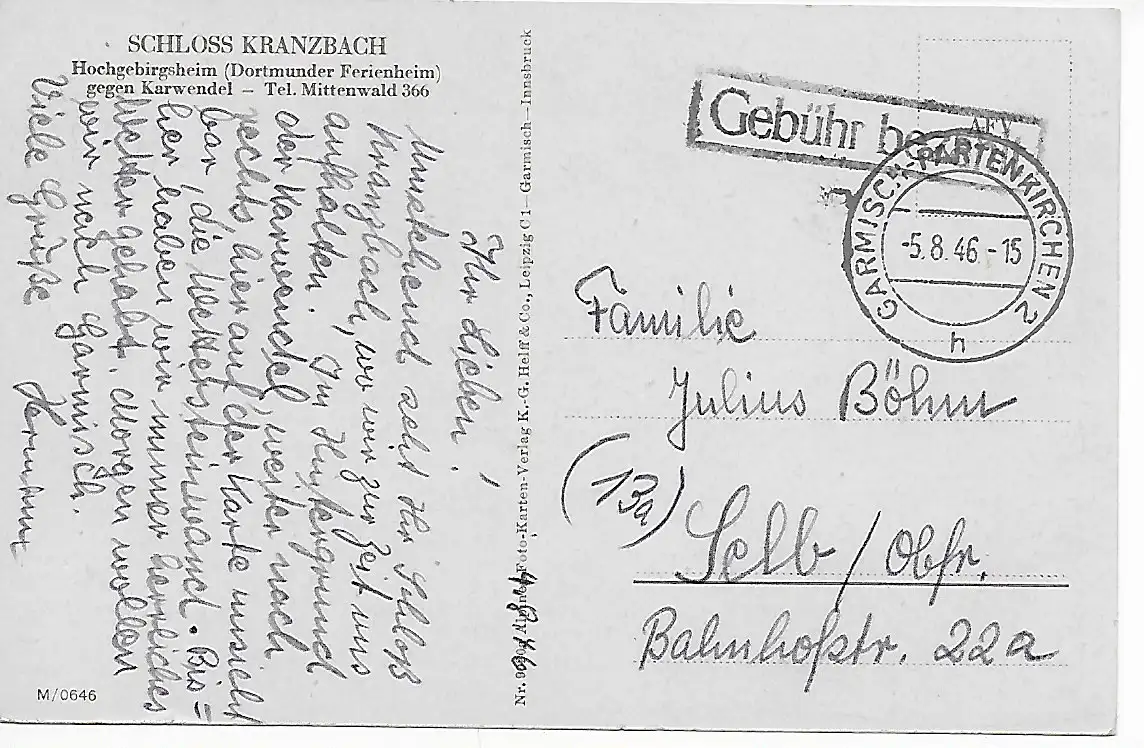 SCHLOSS KRANZBACH
Hochgebirgsheim (Dortmunder Ferienheim)
gegen Karwendel – Tel. Mittenwald 366
Ihr Lieben!
Umstehend seht Ihr Schloß
Kranzbach, wo wir zur Zeit uns
aufhalten. Im Hintergrund
der Karwendel, weiter nach
rechts hier auf der Karte unsicht
bar, die Wettersteinwand. Bis=
her haben wir immer herrliches
Wetter gehabt. Morgen wollen
wir nach Garmisch.
Viele Grüße
Hermann
Foto-Karten-Verlag K. G. Helff & Co., Leipzig C 1 — Garmisch — Innsbruck
M/0646
Gebühr
GARMISCH-PARTENKIRCHEN 2
-5.8.46.-15
h
Familie
Julius Böhm
(13a)
Selb / Obfr.
Bahnhofstr. 22a